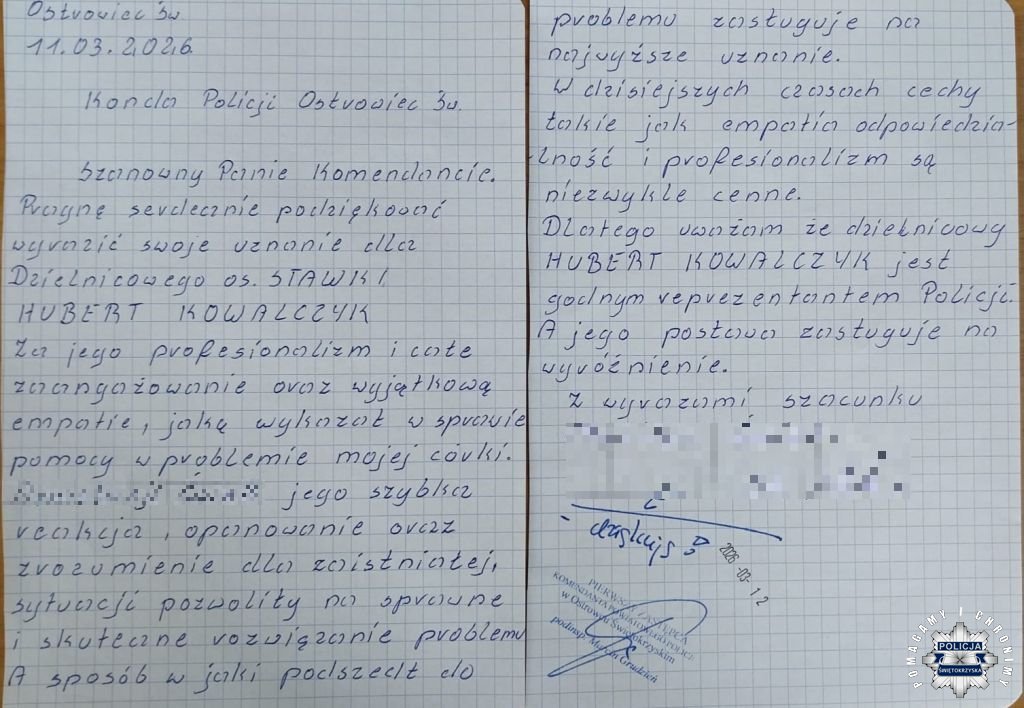 Ostrowiec Św
11.03.2026.
Kąnda Policji Ostrowiec Św.
Szanowny Panie Komendancie.
Pragnę serdecznie podziękować
wyrazić swoje uznanie dla
Dzielnicowego os. STAWKI
HUBERT KOWALCZYK
Za jego profesionalizm i całe
zaangażowanie oraz wyjątkową
empatie, jaką wykazał w sprawie
pomocy w problemie mojej córki.
jego szybka
reakcja, opanowanie oraz
zrozumienie dla zaistniałej,
sytuacji pozwoliły na sprawne
i skuteczne rozwiązanie problemu
A sposób w jaki podszedł do
problemu zasługuje na
najwyższe uznanie.
W dzisiejszych czasach cechy
takie jak empatia odpowiedzia-
-lność i profesionalizm są
niezwykle cenne.
Dlatego uważam że dzielnicowy
HUBERT KOWALCZYK jest
godnym reprezentantem Policji.
A jego postawa zasługuje na
wyróżnienie.
Z wyrazami szacunku
- dziękuję
2026 -03- 12
PIERWSZY ZASTĘPCA
KOMENDANTA POWIATOWEGO POLICJI
w Ostrowcu Świętokrzyskim
podinsp. Marcin Grudzień
POMAGAMY I CHRONIMY
POLICJA
ŚWIĘTOKRZYSKA